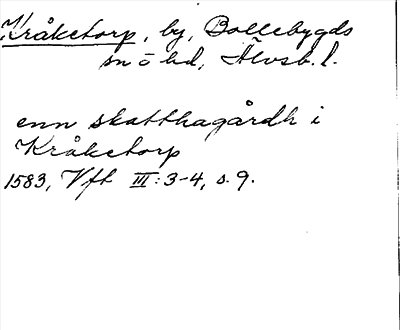 Kråketorp, by, Bollebygds
sn o hd, Älvsb. l.
enn skatthagårdh i
Kråketorp
1583, Vft III: 3-4, s. 9.